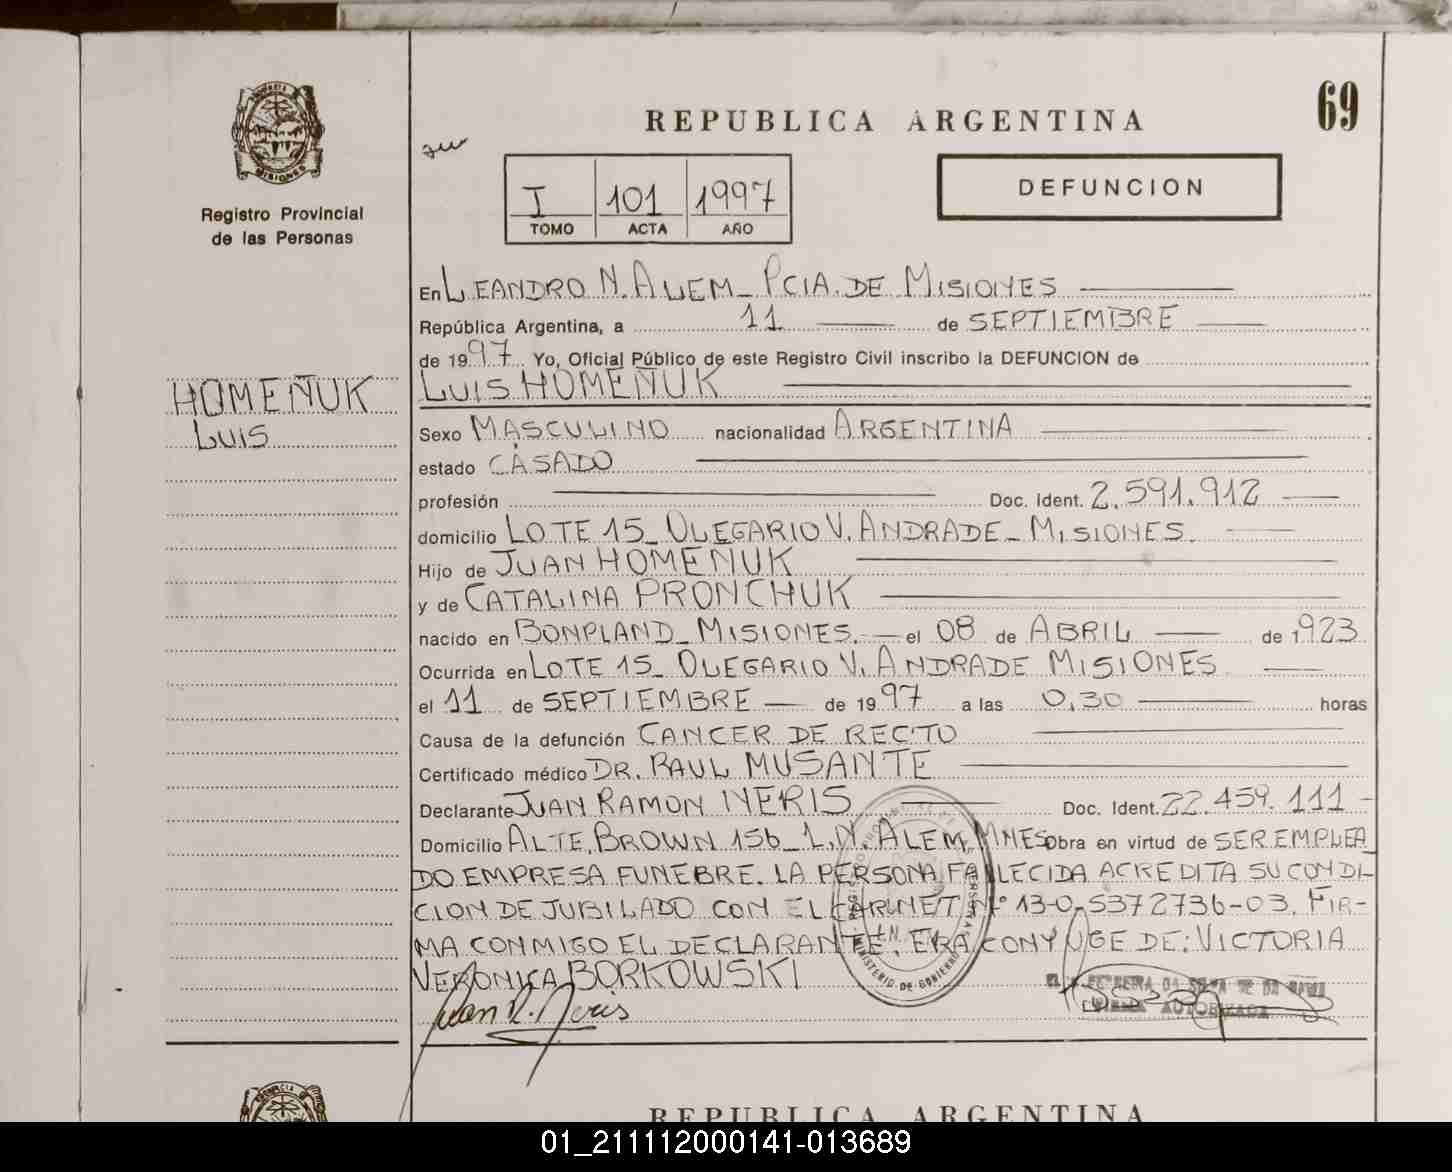 69
REPUBLICA ARGENTINA
DEFUNCION
PROVINCIA DE
MISIONES
Registro Provincial
de las Personas
I 101 1997
TOMO ACTA AÑO
En LEANDRO N. ALEM_ PCIA. DE MISIONES
República Argentina, a 11 de SEPTIEMBRE
de 1997 Yo, Oficial Público de este Registro Civil inscribo la DEFUNCION de
LUIS HOMEÑUK
HOMEÑUK
LUIS
Sexo MASCULINO nacionalidad ARGENTINA
estado CASADO
profesión Doc. Ident. 2.591.912
domicilio LOTE 15_ OLEGARIO V. ANDRADE_ MISIONES.
Hijo de JUAN HOMEÑUK
y de CATALINA PRONCHUK
nacido en BONPLAND_ MISIONES. el 08 de ABRIL de 1923
Ocurrida en LOTE 15_ OLEGARIO V. ANDRADE MISIONES
el 11 de SEPTIEMBRE de 1997 a las 0,30 horas
Causa de la defunción CANCER DE RECTO
Certificado médico DR. RAUL MUSANTE
Declarante JUAN RAMON NERIS Doc. Ident. 22.459.111
Domicilio ALTE. BROWN 156_ L.N. ALEM, MNES obra en virtud de SER EMPLEA
DO EMPRESA FUNEBRE. LA PERSONA FALLECIDA ACREDITA SU CONDI-
CION DE JUBILADO CON EL CARNET N° 13-0-5372736-03. FIR-
MA CONMIGO EL DECLARANTE. ERA CONYUGE DE: VICTORIA
VERONICA BORKOWSKI
Juan R. Neris
MINISTERIO DE GOBIERNO
AUTORIZADA
REPUBLICA ARGENTINA
01_211112000141-013689